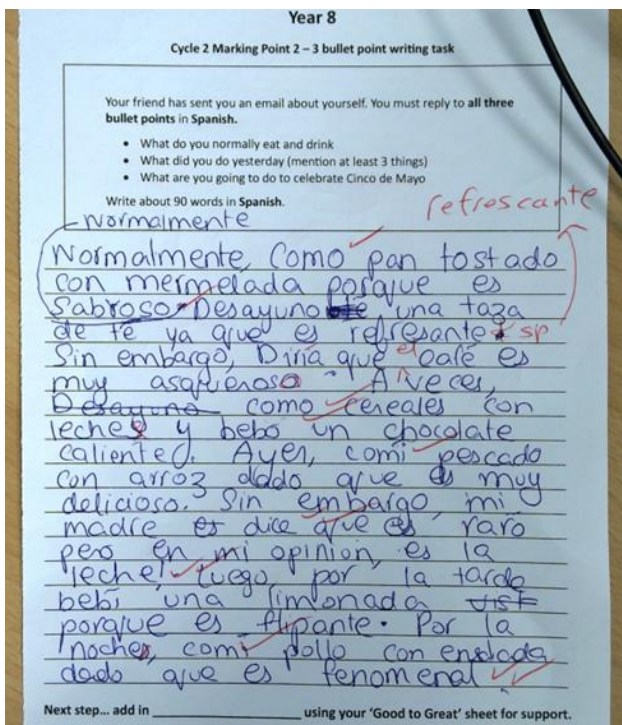 Year 8
Cycle 2 Marking Point 2 – 3 bullet point writing task
Your friend has sent you an email about yourself. You must reply to all three
bullet points in Spanish.
• What do you normally eat and drink
• What did you do yesterday (mention at least 3 things)
• What are you going to do to celebrate Cinco de Mayo
Write about 90 words in Spanish.
refrescante
Normalmente
Normalmente, Como pan tostado
con mermelada porque es
Sabroso. Desayuno una taza
de té ya que es refresante sp
Sin embargo, Diria que el café es
muy asquieroso. A veces,
Desayuno como cereales con
leche y bebo un chocolate
caliente. Ayer, comi pescado
con arroz dado que es muy
delicioso. Sin embargo, mi
madre dice que es raro
pero en mi opinion, es la
leche! Luego, por la tarde
bebí una limonada
porque es flipante. Por la
noche, comi pollo con enslada
dado que es fenomenal
Next step... add in ____________ using your 'Good to Great' sheet for support.